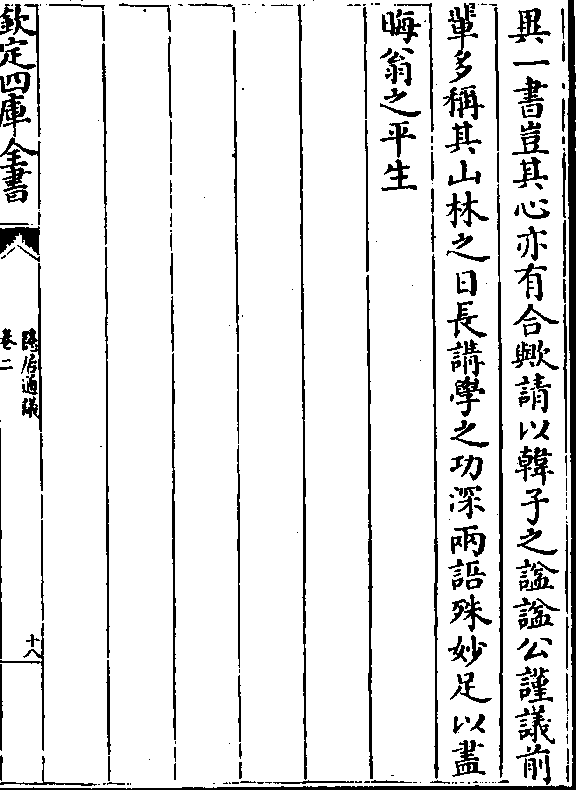 異一書豈其心亦有合歟請以韓子之諡諡公謹議前
輩多稱其山林之日長講學之功深兩語殊妙足以盡
晦翁之平生
欽定四庫全書
隱居通議
卷二
十八